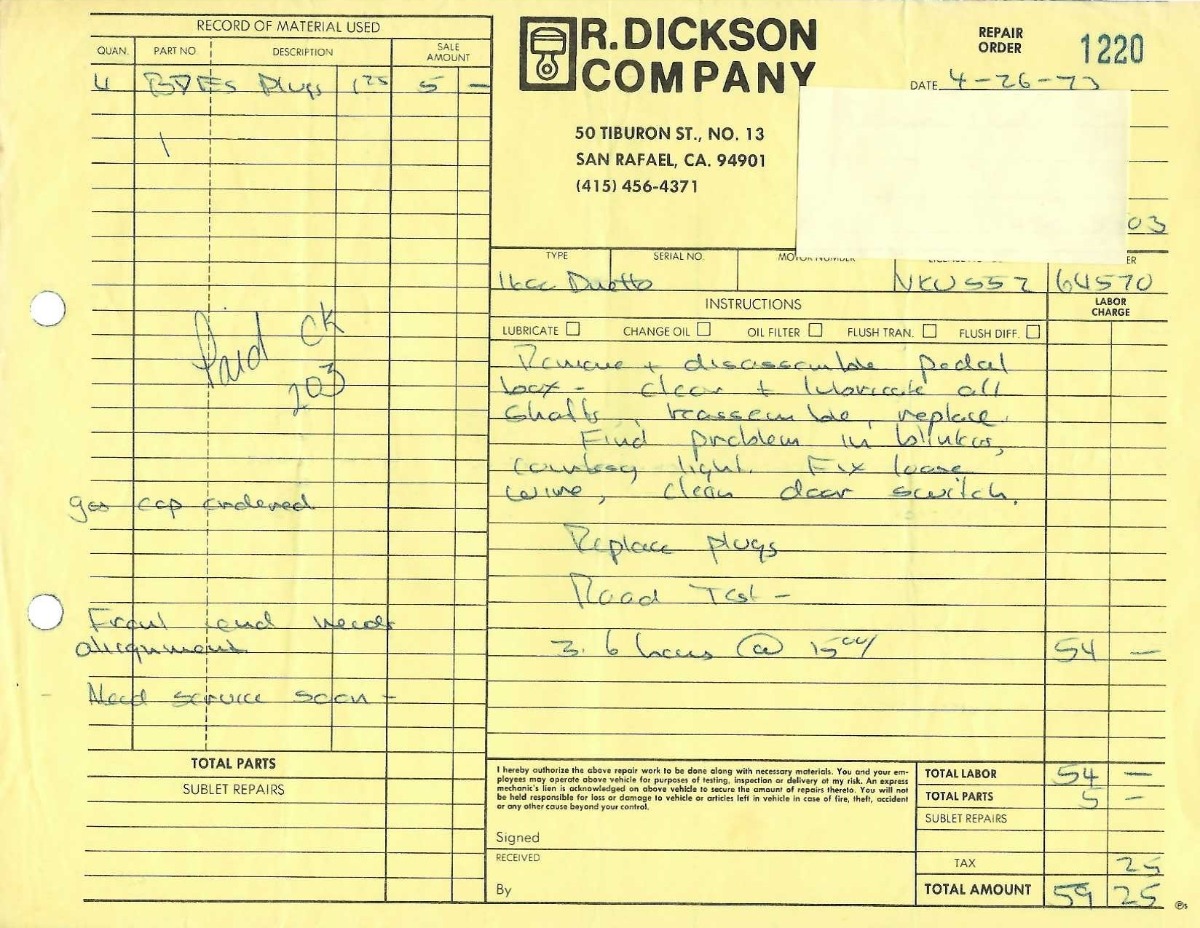 RECORD OF MATERIAL USED
QUAN. PART NO. DESCRIPTION SALE AMOUNT
4 Plugs 1 25 5 —
Paid CK
203
gas cap ordered
Front end needs
alignment
Need service soon –
TOTAL PARTS
SUBLET REPAIRS
R. DICKSON
COMPANY
50 TIBURON ST., NO. 13
SAN RAFAEL, CA. 94901
(415) 456-4371
REPAIR
ORDER 1220
DATE 4-26-73
03
TYPE SERIAL NO. MOTOR NUMBER
Duetto NKU 557 64570
INSTRUCTIONS LABOR CHARGE
LUBRICATE CHANGE OIL OIL FILTER FLUSH TRAN. FLUSH DIFF.
Remove + disassemble pedal
box – clean + lubricate all
shafts, reassemble, replace.
Find problem in blinkers,
courtesy light. Fix loose
wire, clean door switch.
Replace plugs
Road Test –
3.6 hours @ 15 00/ 54 —
I hereby authorize the above repair work to be done along with necessary materials. You and your em-
ployees may operate above vehicle for purposes of testing, inspection or delivery at my risk. An express
mechanic's lien is acknowledged on above vehicle to secure the amount of repairs thereto. You will not
be held responsible for loss or damage to vehicle or articles left in vehicle in case of fire, theft, accident
or any other cause beyond your control.
Signed
RECEIVED
By
TOTAL LABOR 54 —
TOTAL PARTS 5 —
SUBLET REPAIRS
TAX 25
TOTAL AMOUNT 59 25